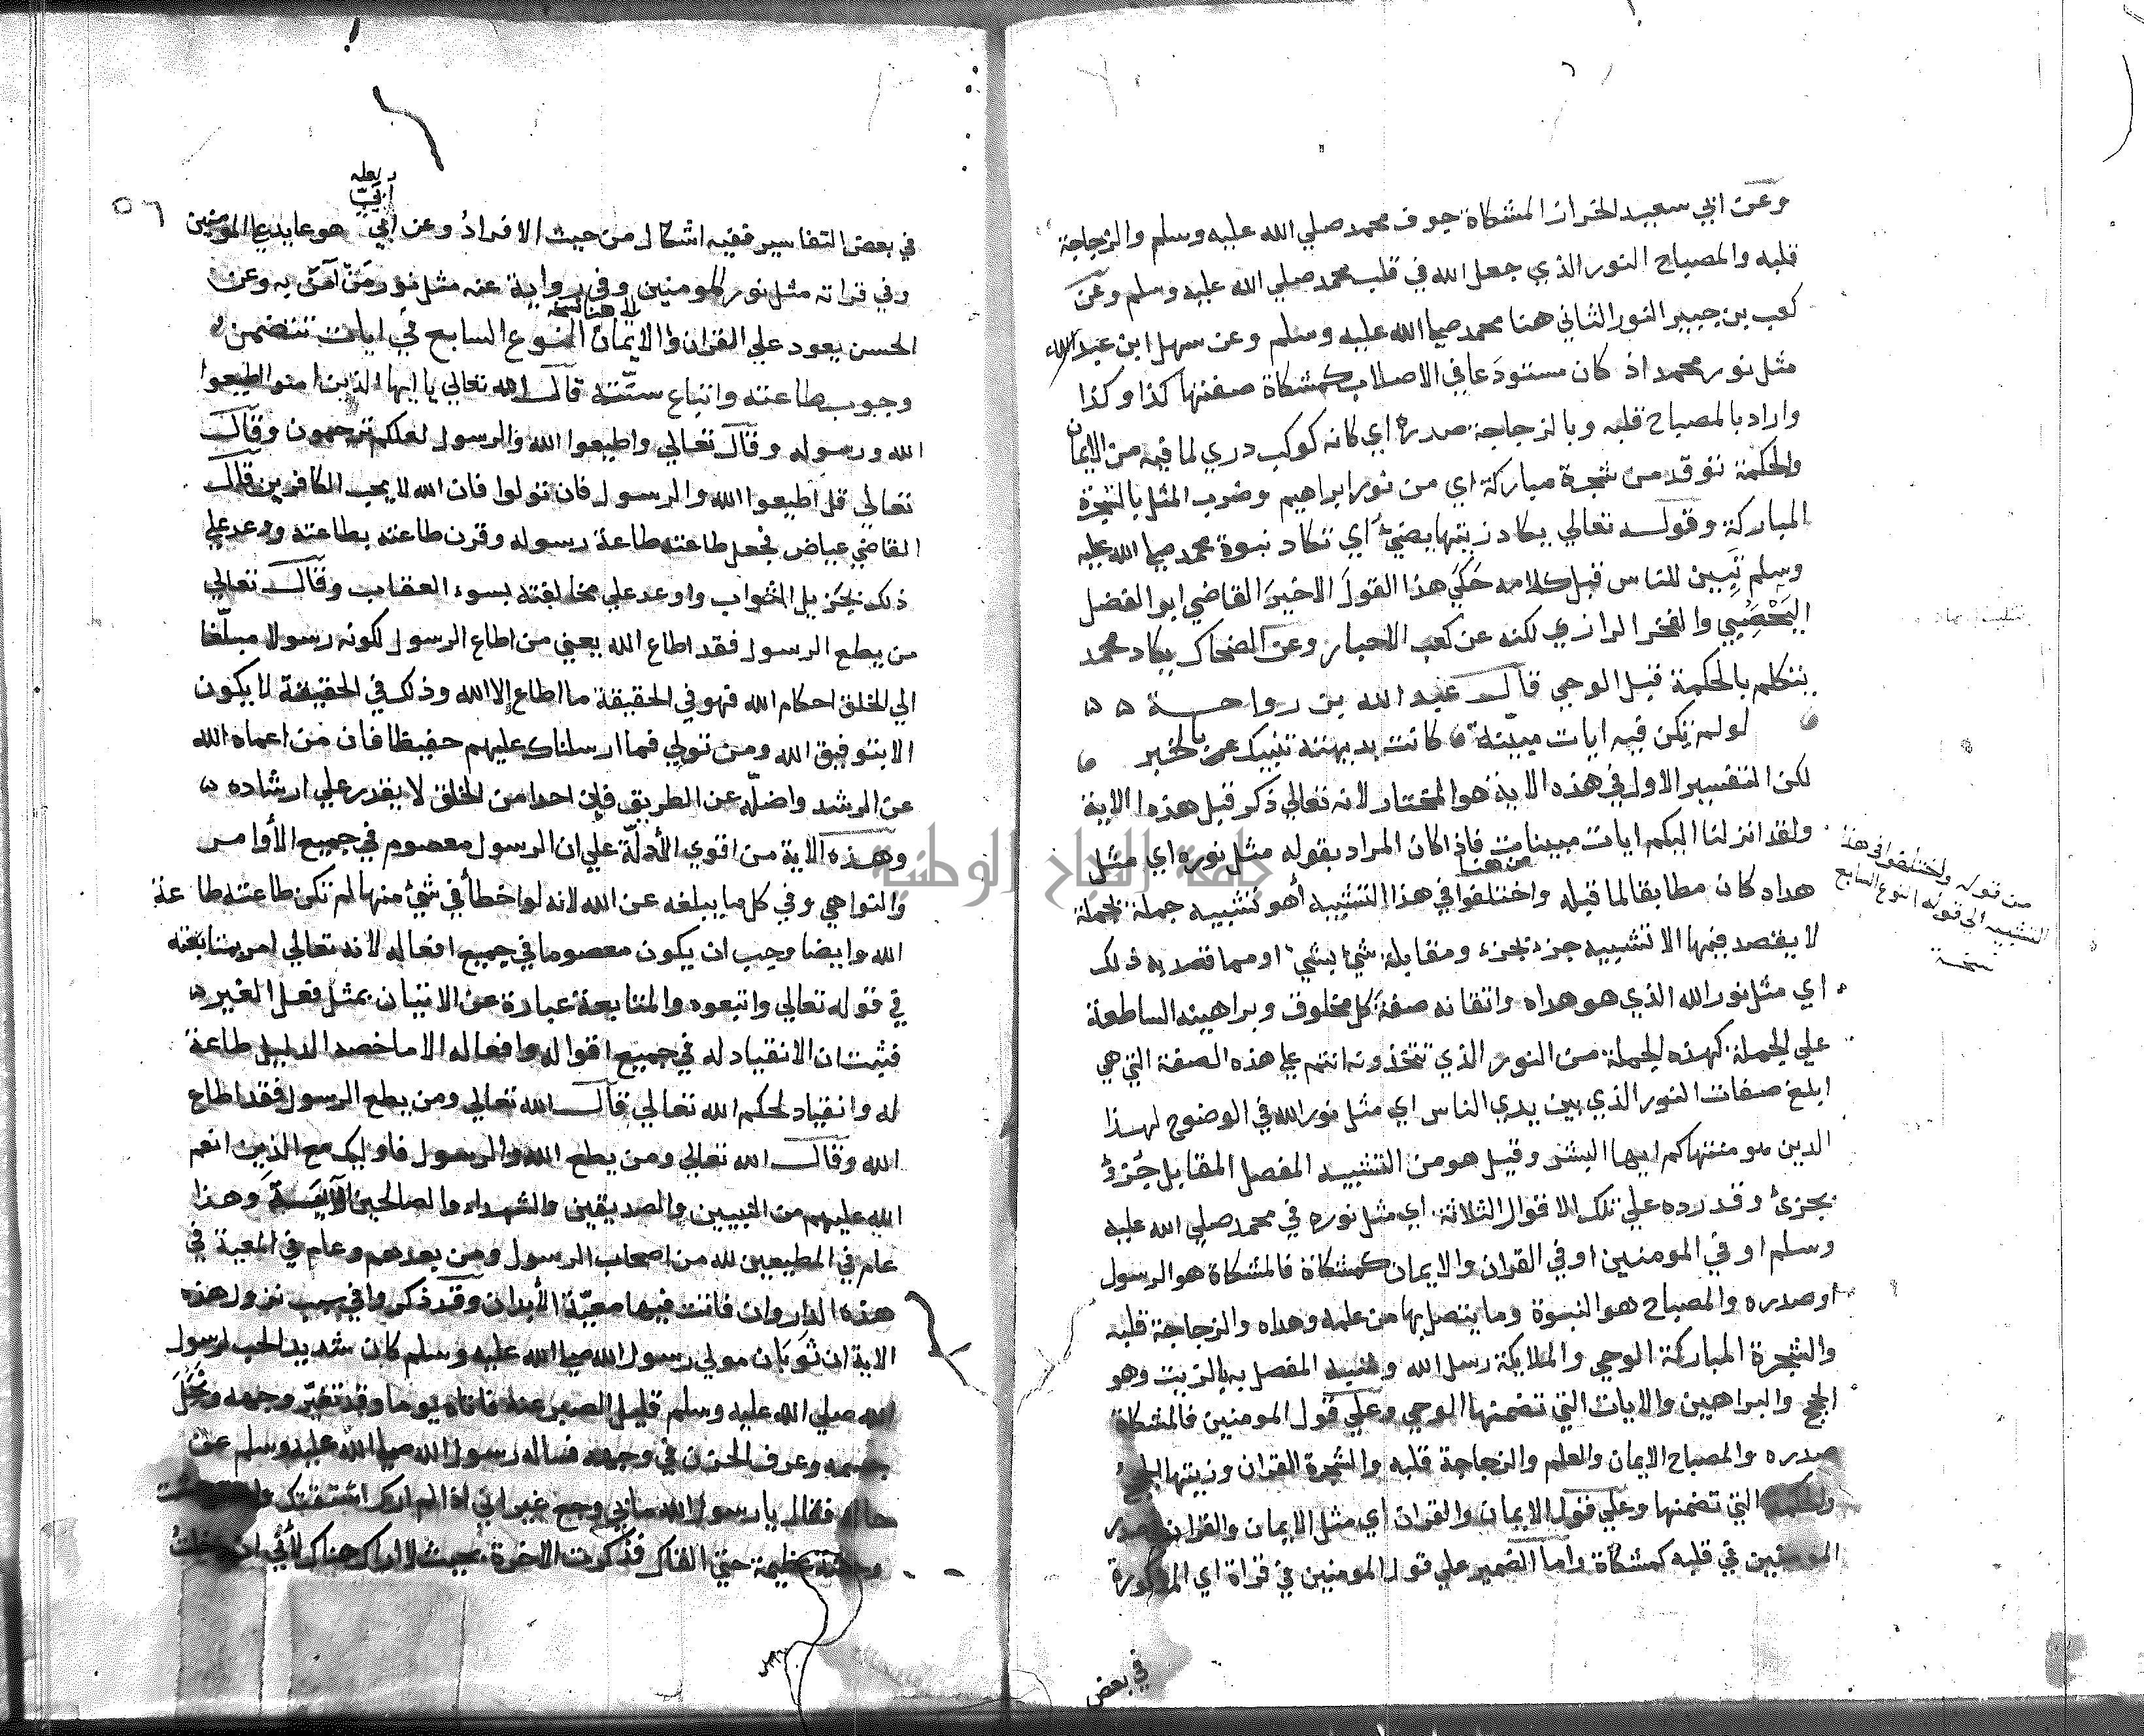 وعن ابي سعيد الخراز المشكاة جوف محمد صلي الله عليه وسلم والزجاجة
قلبه والمصباح النور الذي جعل الله في قلب محمد صلي الله عليه وسلم وعن
كعب بن جبير النور الثاني هنا محمد صلي الله عليه وسلم وعن سهل ابن عبد الله
مثل نور محمد اذ كان مستودعا في الاصلاب كمشكاة صفتها كذا وكذا
واراد بالمصباح قلبه وبالزجاجة صدره اي كانه كوكب دري لما فيه من الايمان
والحكمة توقد من شجرة مباركة اي من نور ابراهيم وضرب المثل بالشجرة
المباركة وقوله تعالي يكاد زيتها يضيء اي تكاد نبوة محمد صلي الله عليه
وسلم تبين للناس قبل كلامه حكي هذا القول الاخير القاضي ابو الفضل
اليحصبي والفخر الرازي لكنه عن كعب الاحبار وعن الضحاك يكاد محمد
يتكلم بالحكمة قبل الوحي قال عبد الله بن رواحة
لو لم تكن فيه ايات مبينة كانت بديهته تنبيك عن بالخبر
لكن التفسير الاول في هذه الاية هو المختار لانه تعالي ذكر قبل هذه الاية
ولقد انزلنا اليكم ايات مبينات فاذا كان المراد بقوله مثل نوره اي مثل
هداه كان مطابقا لما قبله واختلفوا في هذا التشبيه أهو تشبيه جملة بجملة
من هنا
لا يقصد فيها الا تشبيه جزء بجزء ومقابلة شيء بشيء او مما قصد به ذلك
اي مثل نور الله الذي هو هداه واتقانه صفة كل مخلوق وبراهينه الساطعة
علي الجملة كهذه الجملة من النور الذي تتخذونه انتم علي هذه الصفة التي هي
ابلغ صفات النور الذي بين يدي الناس اي مثل نور الله في الوضوح لهذا
الذين هو منتهاكم ايها البشر وقيل هو من التشبيه المفصل المقابل جزء
بجزء وقدره علي تلك الاقوال الثلاثة اي مثل نوره في محمد صلي الله عليه
وسلم او في المومنين او في القران والايمان كمشكاة فالمشكاة هو الرسول
او صدره والمصباح هو النبوة وما يتصل بها من علمه وهداه والزجاجة قلبه
والشجرة المباركة الوحي والملايكة رسل الله وشبيه المفصل به بالزيت وهو
الحجج والبراهين والايات التي تضمنها الوحي وعلي قول المومنين فالمشكاة
صدره والمصباح الايمان والعلم والزجاجة قلبه والشجرة القران وزيتها الحجج
والحكمة التي تضمنها وعلي قول الايمان والقران اي مثل الايمان والقران في صدر
المومنين في قلبه كمشكاة واما الضمير علي قول المومنين في قراة اي المذكورة
في بعض
من قوله واختلفوا في هذا
التشبيه الي قوله النوع السابع
نسخة
٥٦
في بعض التفاسير ففيه اشكال من حيث الافراد وعن ابي هو عايد علي المومنين
وفي قراته مثل نور المومنين وفي رواية عنه مثل نور من آمن به وعن
الي هنا نسخة
الحسن يعود علي القران والايمان النوع السابع في ايات تتضمن
وجوب طاعته واتباع سنته قال الله تعالي يا ايها الذين امنوا اطيعوا
الله ورسوله وقال تعالي واطيعوا الله والرسول لعلكم ترحمون وقال
تعالي قل اطيعوا الله والرسول فان تولوا فان الله لا يحب الكافرين قال
القاضي عياض فجعل طاعته طاعة رسوله وقرن طاعته بطاعته ووعد علي
ذلك بجزيل الثواب واوعد علي مخالفته بسوء العقاب وقال تعالي
من يطع الرسول فقد اطاع الله يعني من اطاع الرسول لكونه رسولا مبلغا
الي الخلق احكام الله فهو في الحقيقة ما اطاع الا الله وذلك في الحقيقة لا يكون
الا بتوفيق الله ومن تولي فما ارسلناك عليهم حفيظا فان من اعماه الله
عن الرشد واضله عن الطريق فان احدا من الخلق لا يقدر علي ارشاده
وهذه الاية من اقوي الأدلة علي ان الرسول معصوم في جميع الأوامر
والنواهي وفي كل ما يبلغه عن الله لانه لو اخطأ في شيء منها لم تكن طاعته طاعة
الله وايضا وجب ان يكون معصوما في جميع افعاله لانه تعالي امر بمتابعته
في قوله تعالي واتبعوه والمتابعة عبارة عن الاتيان بمثل فعل الغير
فثبت ان الانقياد له في جميع اقواله وافعاله الا ما خصه الدليل طاعة
له وانقياد لحكم الله تعالي قال الله تعالي ومن يطع الرسول فقد اطاع
الله وقال الله تعالي ومن يطع الله والرسول فاوليك مع الذين انعم
الله عليهم من النبيين والصديقين والشهداء والصالحين الآية وهذا
عام في المطيعين لله من اصحاب الرسول ومن بعدهم وعام في المعية في
هذه الدار وان فاتت فيها معية الأبدان وقد ذكروا في سبب نزول هذه
الاية ان ثوبان مولي رسول الله صلي الله عليه وسلم كان شديد الحب لرسول
الله صلي الله عليه وسلم قليل الصبر عنه فاتاه يوما وقد تغير وجهه ونحل
جسمه وعرف الحزن في وجهه فساله رسول الله صلي الله عليه وسلم عن
حاله فقال يا رسول الله ما بي وجع غير اني اذا لم ارك اشتقتك واستوحشت
وحشة عظيمة حتي القاك فذكرت الاخرة بحيث لا اراك هناك لأني ان دخلت